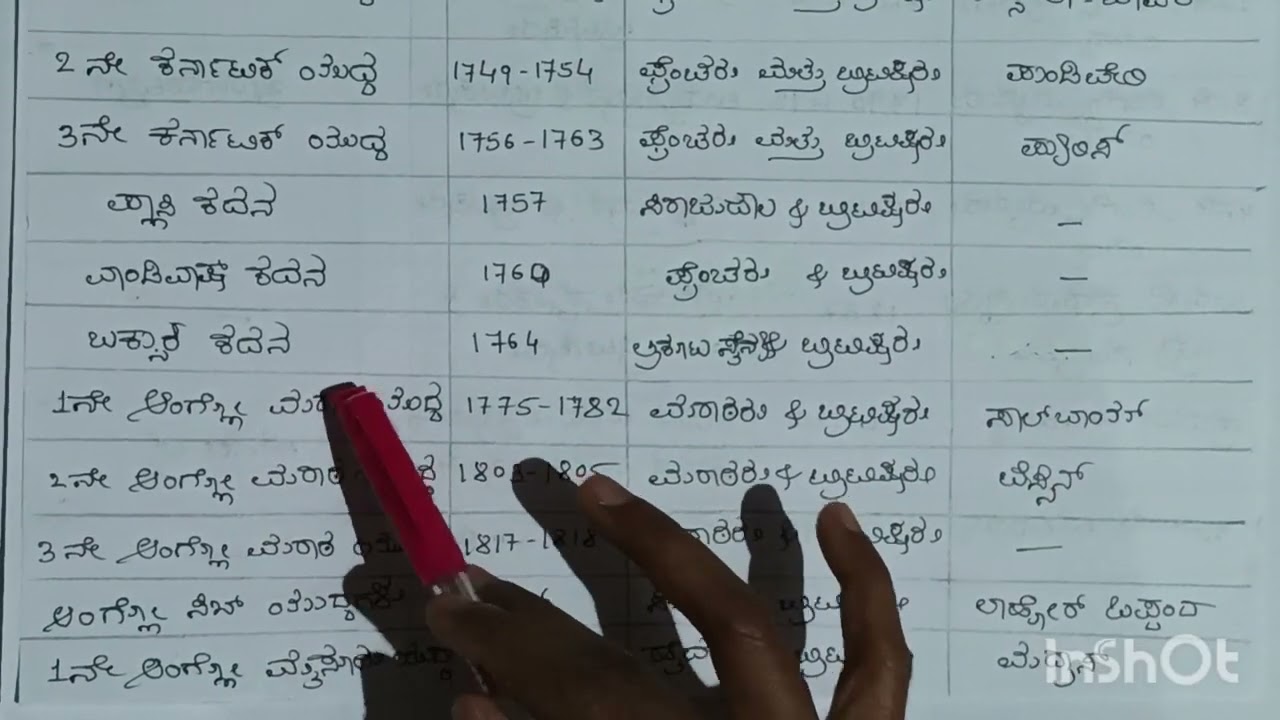 2 ನೇ ಕರ್ನಾಟಿಕ್ ಯುದ್ಧ 1749-1754 ಫ್ರೆಂಚರು ಮತ್ತು ಬ್ರಿಟಿಷರು ಪಾಂಡಿಚೇರಿ
3ನೇ ಕರ್ನಾಟಿಕ್ ಯುದ್ಧ 1756-1763 ಫ್ರೆಂಚರು ಮತ್ತು ಬ್ರಿಟಿಷರು ಪ್ಯಾರಿಸ್
ಪ್ಲಾಸಿ ಕದನ 1757 ಸಿರಾಜುದೌಲ & ಬ್ರಿಟಿಷರು —
ವಾಂಡಿವಾಷ್ ಕದನ 1760 ಫ್ರೆಂಚರು & ಬ್ರಿಟಿಷರು —
ಬಕ್ಸಾರ್ ಕದನ 1764 ಬ್ರಿಟಿಷರು —
1ನೇ ಆಂಗ್ಲೋ ಯುದ್ಧ 1775-1782 ಮರಾಠರು & ಬ್ರಿಟಿಷರು ಸಾಲ್‌ಬಾಯ್
2ನೇ ಆಂಗ್ಲೋ ಮರಾಠ 1803-1805 ಮರಾಠರು & ಬ್ರಿಟಿಷರು ಬೆಸ್ಸಿನ್
3 ನೇ ಆಂಗ್ಲೋ ಮರಾಠ 1817-1818 & —
ಆಂಗ್ಲೋ ಸಿಖ್ ಯುದ್ಧಗಳು ಲಾಹೋರ್ ಒಪ್ಪಂದ
1ನೇ ಆಂಗ್ಲೋ ಮೈಸೂರು ಮದ್ರಾಸ್
InShOt